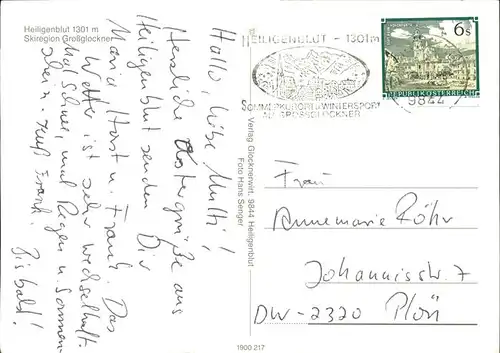 Heiligenblut 1301 m
Skiregion Großglockner
Hallo, liebe Mutti!
Herzliche Ostergrüße aus
Heiligenblut senden Dir
Maria, Horst u. Frank. Das
Wetter ist sehr wechselhaft.
Mal Schnee, mal Regen u. Sonnen-
schein. Gruß Frank!
Bis bald!
Verlag Glocknerwirt, 9844 Heiligenblut
Foto Hans Senger
1900 217
HEILIGENBLUT - 1301m
SOMMERKURORT u. WINTERSPORT
AM GROSSGLOCKNER
9844
6 S
REPUBLIK ÖSTERREICH
Frau
Annemarie Röhr
Johannisstr. 7
DW-2320 Plön